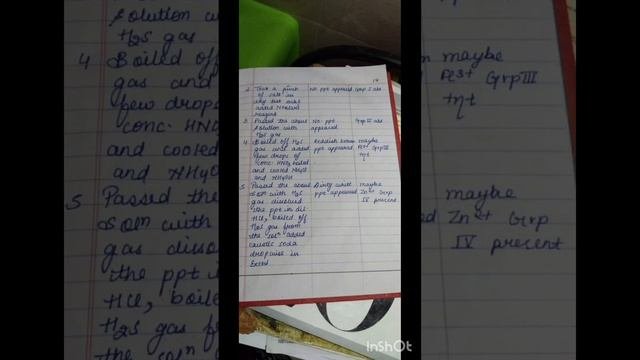 Solution with
H2S gas
4 Boiled off
gas and
few drops
conc. HNO3
and cooled
and NH4OH
5 Passed the
soln with
gas disso
the ppt in
HCl, boiled
H2S gas f
the soln
14
2 Took a pinch No ppt appeared Grp I abs
of salt in
dry test
added
reagent
3 Passed the above No ppt Grp II abs
solution with appeared
H2S gas
4 Boiled off H2S Reddish brown maybe
gas and added ppt appeared Fe3+ Grp III
few drops of
conc. HNO3 boiled
and cooled
and NH4OH
5 Passed the above Dirty white maybe
soln with H2S ppt appeared Zn2+ Grp
gas dissolved IV present
the ppt in dil
HCl, boiled off
H2S gas from
the soln added
caustic soda
dropwise in
Excess
maybe
Fe3+ Grp III
maybe
Zn2+ Grp
IV present
InShOt